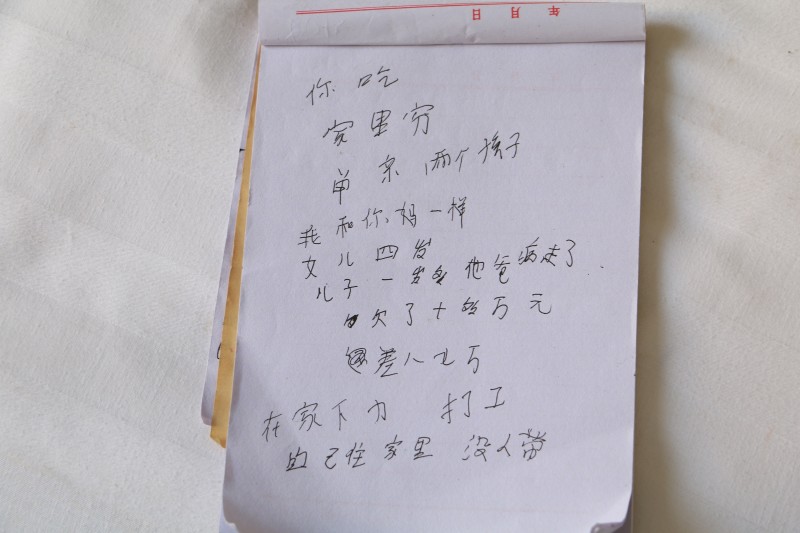 年 月 日
你吃
家里穷
单亲 两个孩子
我和你妈一样
女儿 四岁
儿子一岁多 他爸病走了.
欠了十多万元
还差八七万
在家下力 打工
自己住家里 没人带